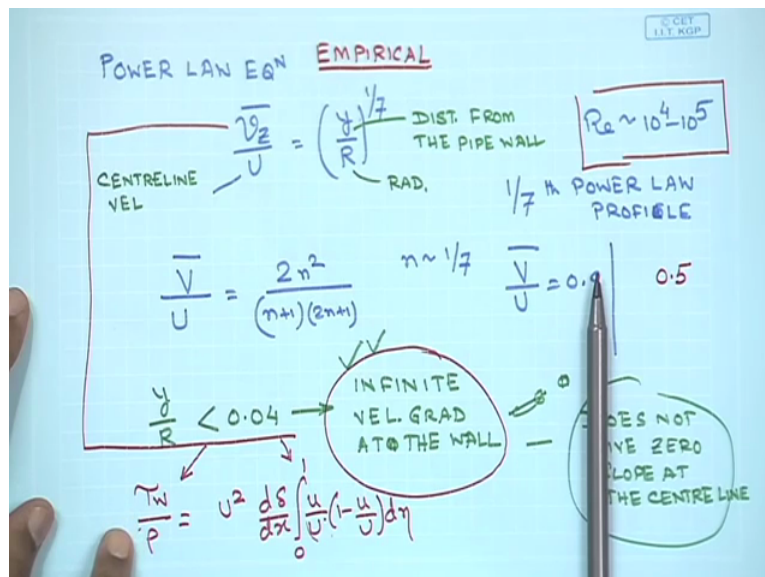 © CET
I.I.T. KGP
POWER LAW EQᴺ EMPIRICAL
v̅_z/U = (y/R)^1/7
DIST. FROM
THE PIPE WALL
Re ~ 10⁴–10⁵
CENTRELINE
VEL
RAD.
1/7 th POWER LAW
PROFILE
V̅/U = 2n²/(n+1)(2n+1)
n ~ 1/7
V̅/U = 0.
0.5
y/R < 0.04
INFINITE
VEL. GRAD
AT THE WALL
ZERO
AT
THE CENTRE LINE
τ_w/ρ = U² dδ/dx ∫₀¹ u/U (1 - u/U) dη